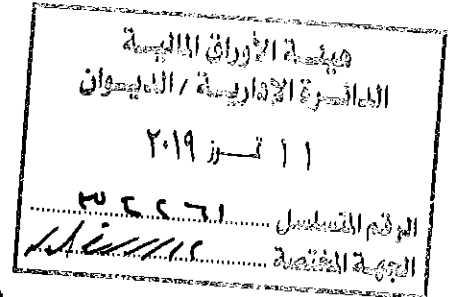 هيئـة الأوراق الماليـة
الدائـرة الإداريـة / الديـوان
١١ تمـوز ٢٠١٩
الرقم المتسلسل
الجهة المختصة